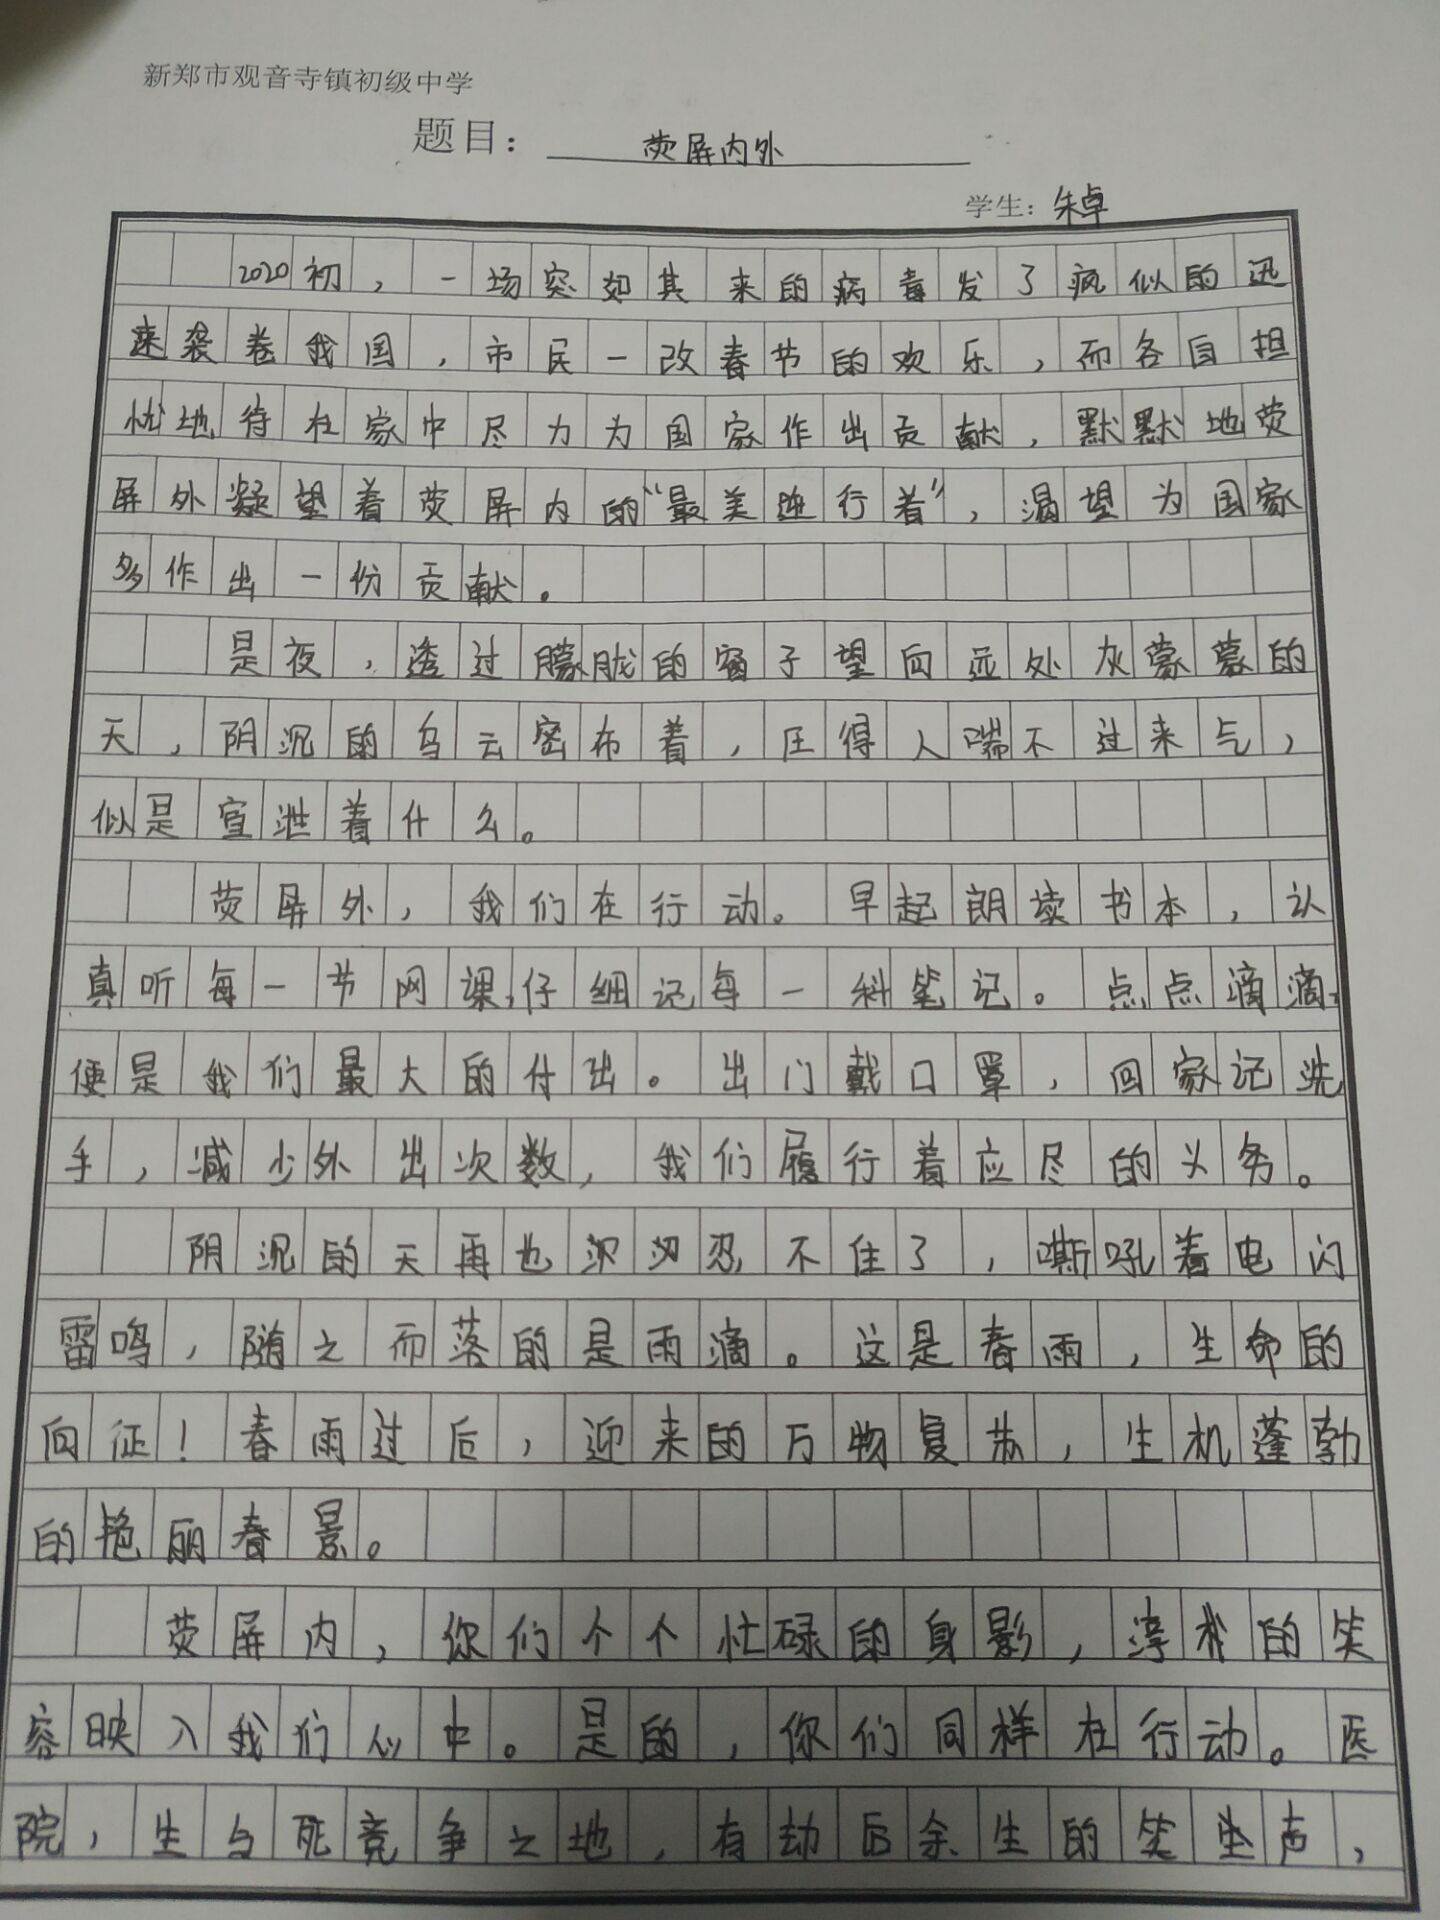 新郑市观音寺镇初级中学
题目：荧屏内外
学生：朱卓
2020初，一场突如其来的病毒发了疯似的迅
速袭卷我国，市民一改春节的欢乐，而各自担
忧地待在家中尽力为国家作出贡献，默默地荧
屏外凝望着荧屏内的“最美逆行者”，渴望为国家
多作出一份贡献。
是夜，透过朦胧的窗子望向远处灰蒙蒙的
天，阴沉的乌云密布着，压得人喘不过来气，
似是宣泄着什么。
荧屏外，我们在行动。早起朗读书本，认
真听每一节网课，仔细记每一科笔记。点点滴滴，
便是我们最大的付出。出门戴口罩，回家记洗
手，减少外出次数，我们履行着应尽的义务。
阴沉的天再也忍不住了，嘶吼着电闪
雷鸣，随之而落的是雨滴。这是春雨，生命的
向征！春雨过后，迎来的万物复苏，生机蓬勃
的艳丽春景。
荧屏内，你们个个忙碌的身影，淳朴的笑
容映入我们心中。是的，你们同样在行动。医
院，生与死竞争之地，有劫后余生的笑声，